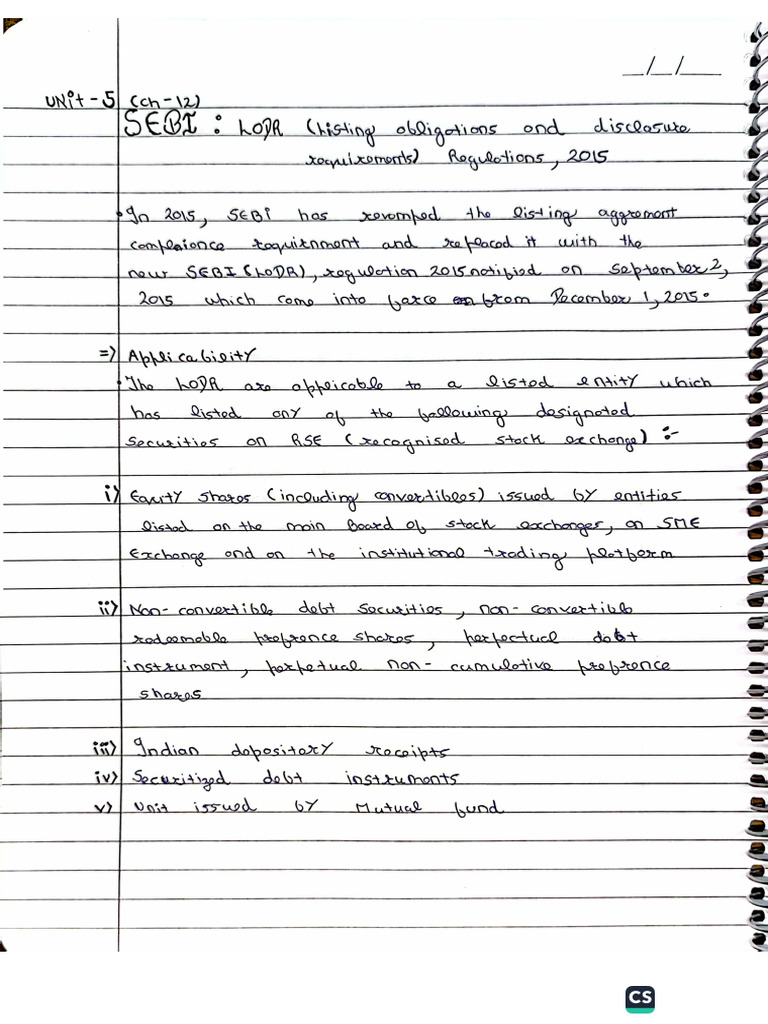 __/__/____
Unit - 5 (ch-12)
SEBI : LODR (Listing obligations and disclosure
requirements) Regulations, 2015
• In 2015, SEBI has revamped the listing aggrement
complaience requirnment and replaced it with the
new SEBI (LODR), regulation 2015 notified on September 2,
2015 which come into force from December 1, 2015.
=> Applicability
• The LODR are applicable to a listed entity which
has listed any of the following designated
Securities on RSE (recognised stock exchange) :-
i) Equity shares (including convertibles) issued by entities
listed on the main Board of stock exchanges, on SME
Exchange and on the institutional trading platform
ii) Non-convertible debt securities, non-convertible
redeemable prefrence shares, perpectual debt
instrument, perpetual non-cumulative prefrence
shares
iii) Indian depository receipts
iv) Securitized debt instruments
v) Unit issued by Mutual fund
CS